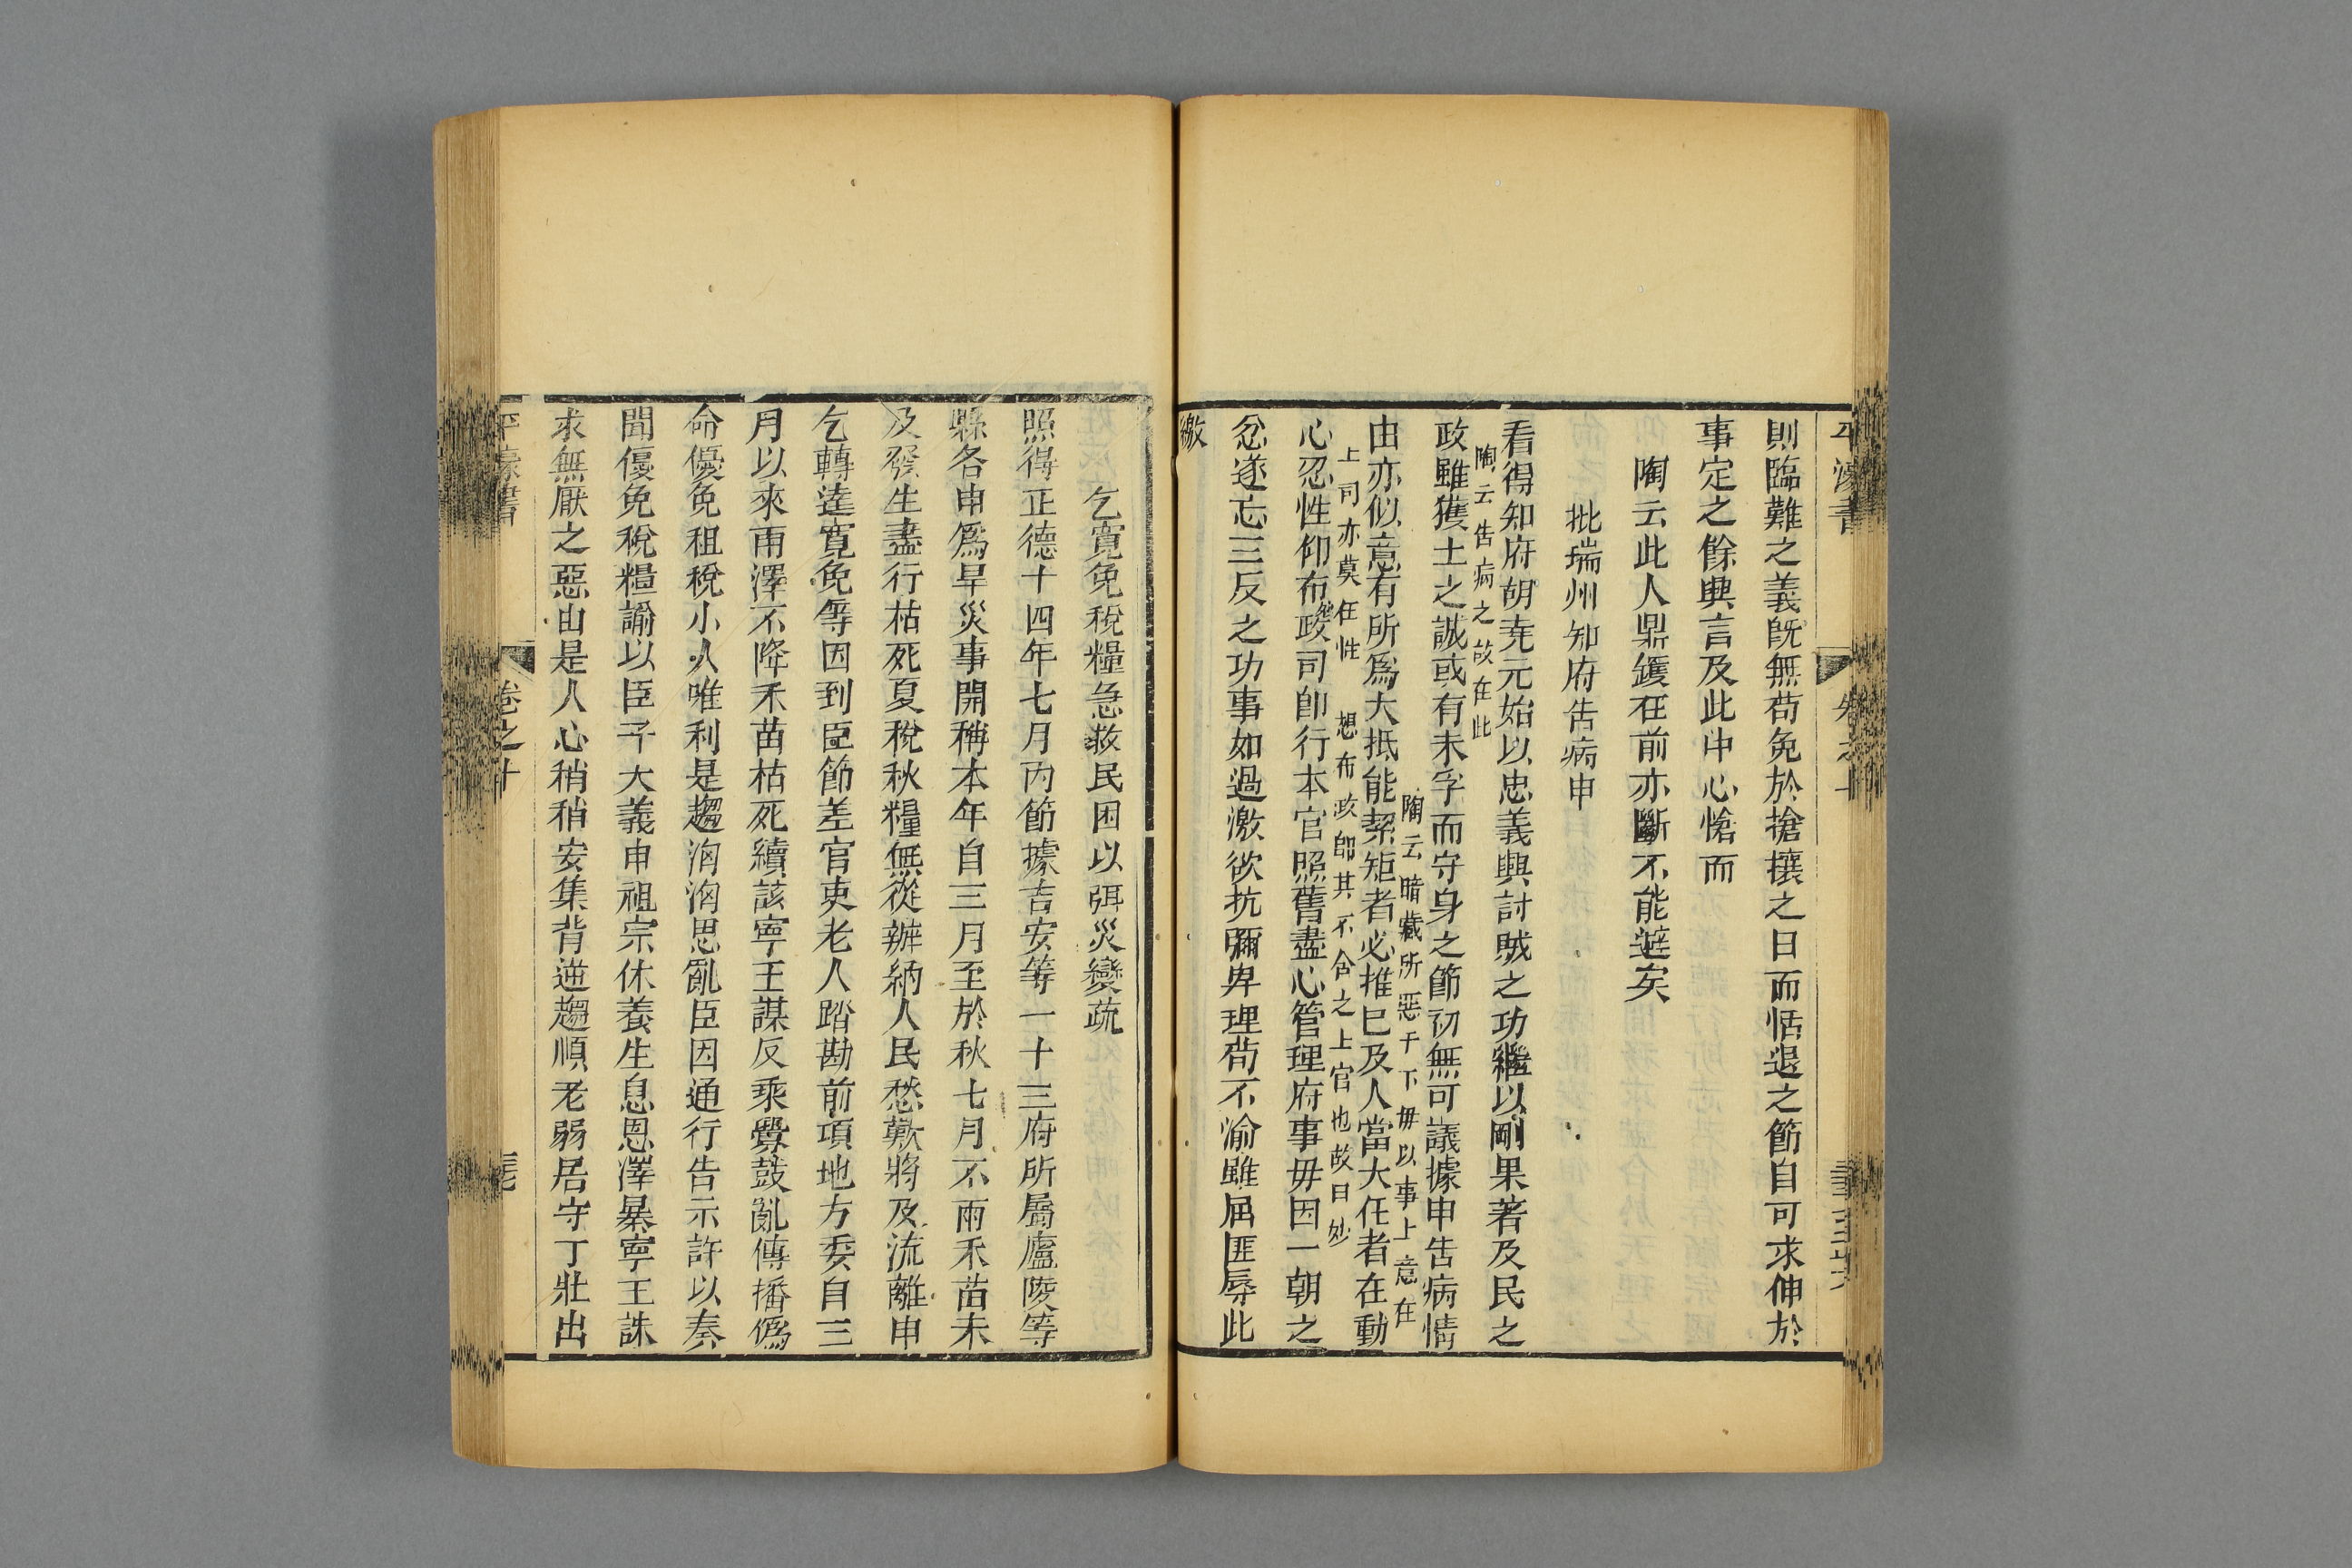 平濠書
卷之十
則臨難之義旣無苟免於搶攘之日而恬退之節自可求伸於
事定之餘興言及此中心愴而
陶云此人鼎鑊在前亦斷不能避矣
批瑞州知府告病申
看得知府胡堯元始以忠義興討賊之功繼以剛果著及民之
陶云告病之故在此
政雖獲士之誠或有未孚而守身之節初無可議據申告病情
陶云暗藏所惡于下毋以事上意在
由亦似意有所爲大抵能絜矩者必推己及人當大任者在動
上司亦莫任性
想布政卽其不合之上官也故曰妙
心忍性仰布政司卽行本官照舊盡心管理府事毋因一朝之
妙
忿遂忘三反之功事如過激欲抗彌卑理苟不渝雖屈匪辱此
繳
乞寬免稅糧急救民困以弭災變疏
照得正德十四年七月內節據吉安等一十三府所屬廬陵等
縣各申爲旱災事開稱本年自三月至於秋七月不雨禾苗未
及發生盡行枯死夏稅秋糧無從辦納人民愁歎將及流離申
乞轉達寬免等因到臣節差官吏老人踏勘前項地方委自三
月以來雨澤不降禾苗枯死續該寧王謀反乘釁鼓亂傳播僞
命優免租稅小人唯利是趨洶洶思亂臣因通行告示許以奏
聞優免稅糧諭以臣子大義申祖宗休養生息恩澤暴寧王誅
求無厭之惡由是人心稍稍安集背逆趨順老弱居守丁壯出
平濠書
卷之十